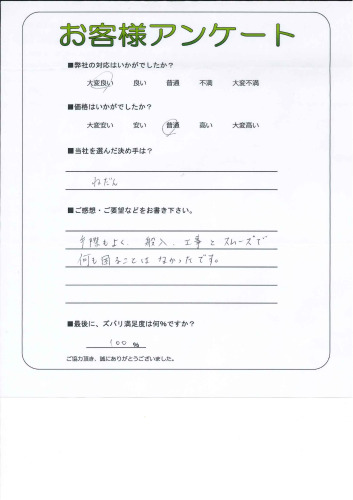 お客様アンケート
■弊社の対応はいかがでしたか?
大変良い 良い 普通 不満 大変不満
■価格はいかがでしたか?
大変安い 安い 普通 高い 大変高い
■当社を選んだ決め手は?
ねだん
■ご感想・ご要望などをお書き下さい。
手際もよく、搬入、工事とスムーズで
何も困ることはなかったです。
■最後に、ズバリ満足度は何%ですか?
100 %
ご協力頂き、誠にありがとうございました。